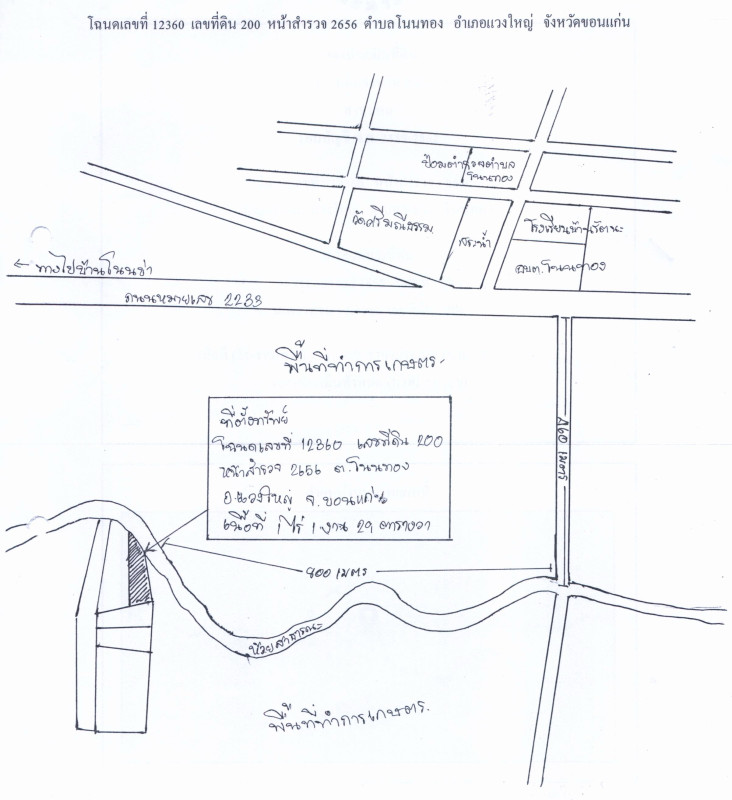 โฉนดเลขที่ 12360 เลขที่ดิน 200 หน้าสำรวจ 2656 ตำบลโนนทอง อำเภอแวงใหญ่ จังหวัดขอนแก่น
ป้อมตำรวจตำบล
โนนทอง
วัดศรีมณีธรรม
สระน้ำ
โรงเรียนบ้าน
อบต.โนนทอง
← ทางไปบ้านโนนข่า
ถนนหมายเลข 2233
พื้นที่ทำการเกษตร
460 เมตร
ที่ตั้งทรัพย์
โฉนดเลขที่ 12360 เลขที่ดิน 200
หน้าสำรวจ 2656 ต.โนนทอง
อ.แวงใหญ่ จ.ขอนแก่น
เนื้อที่ 1 ไร่ 1 งาน 29 ตารางวา
400 เมตร
ห้วยสาธารณะ
พื้นที่ทำการเกษตร